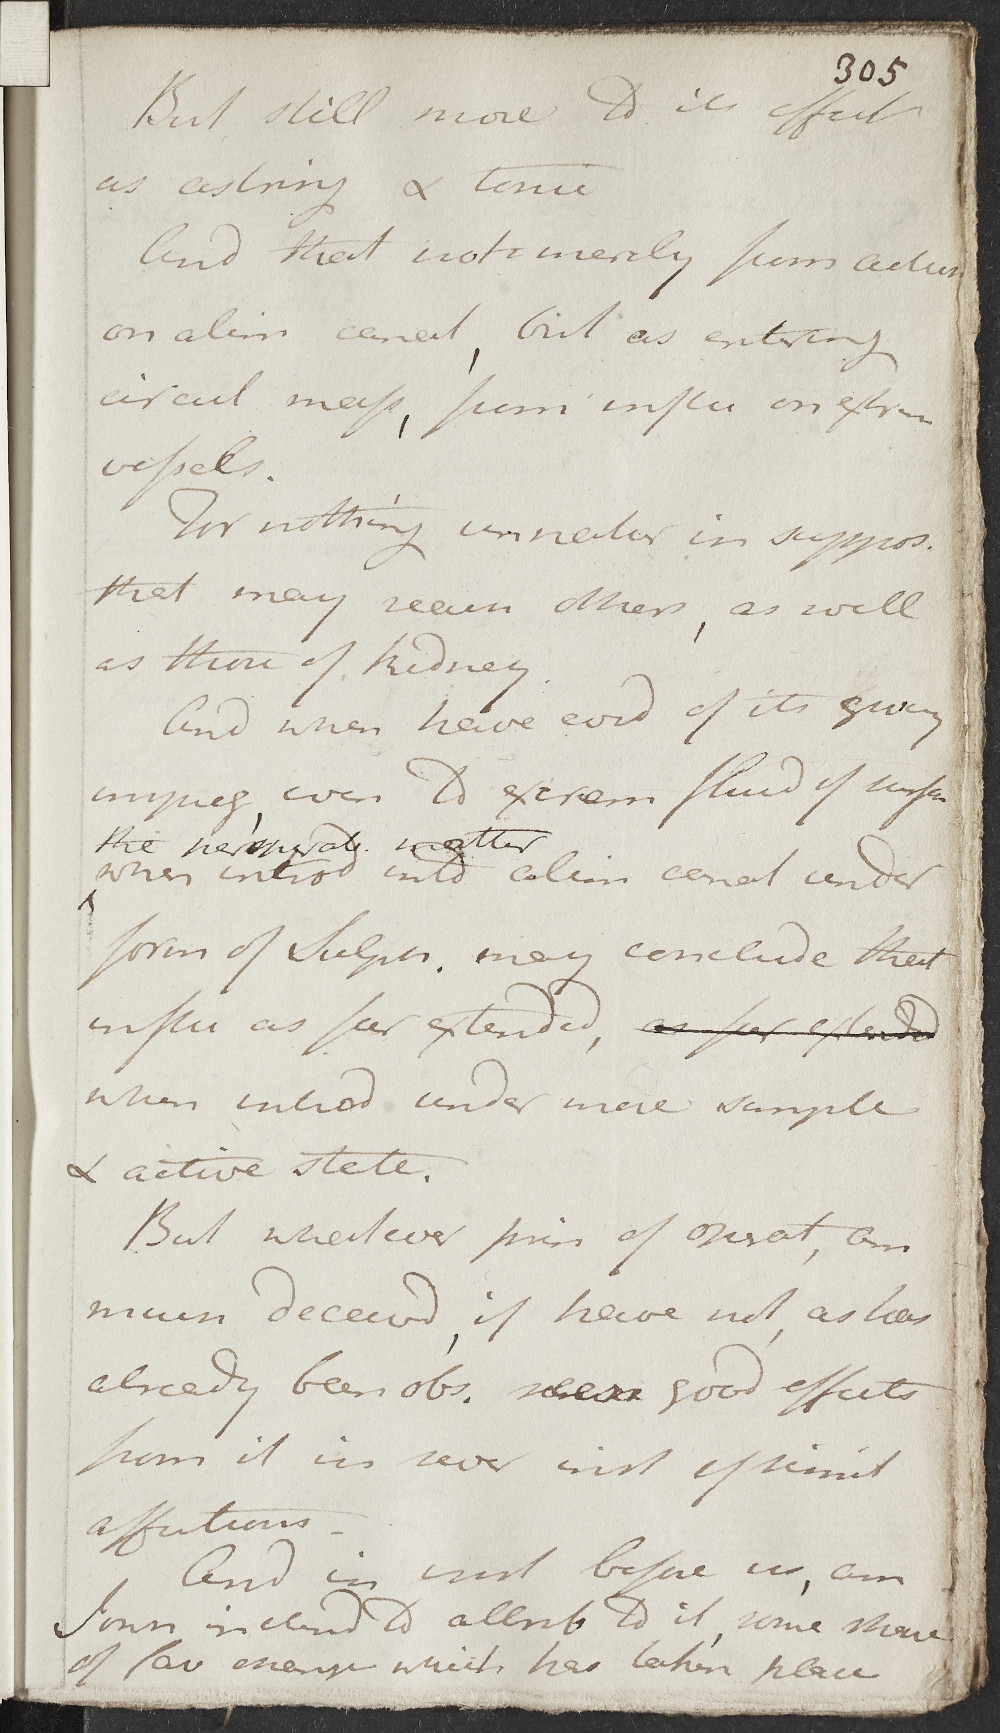 305
But still more to its effect
as astring & tonic
And that not merely from action
on alim canal, but as entering
circul mass, from influ on extrem
vessels.
For nothing unnatur in suppos.
that may reach others, as well
as those of kidney.
And when have evid of its
impreg, even to extrem fluid of
the perspirat. matter
when introd into alim canal under
form of Sulph. may conclude that
influ as far extended, as far extended
when introd under more simple
& active state.
But whatever prin of operat, am
much deceivd, if have not, as has
already been obs. seen good effects
from it in sever inst of simil
affections -
And in inst before us, am
inclind to attrib to it, some share
of fav change which has taken place